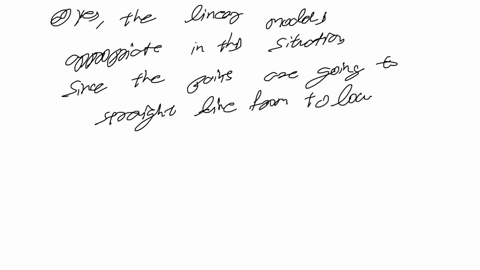 a) Yes, the linear model is
appropriate in this situation
Since the points are going to
straight line from to low